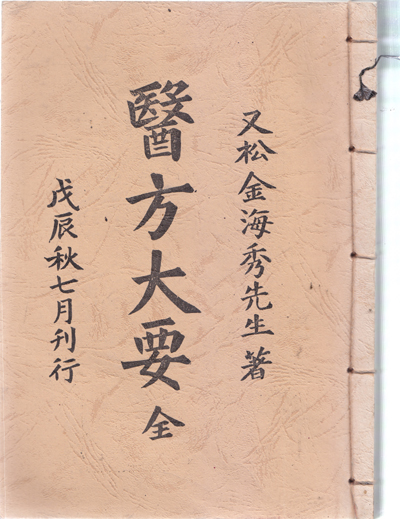 又松金海秀先生著
醫方大要 全
戊辰秋七月刊行